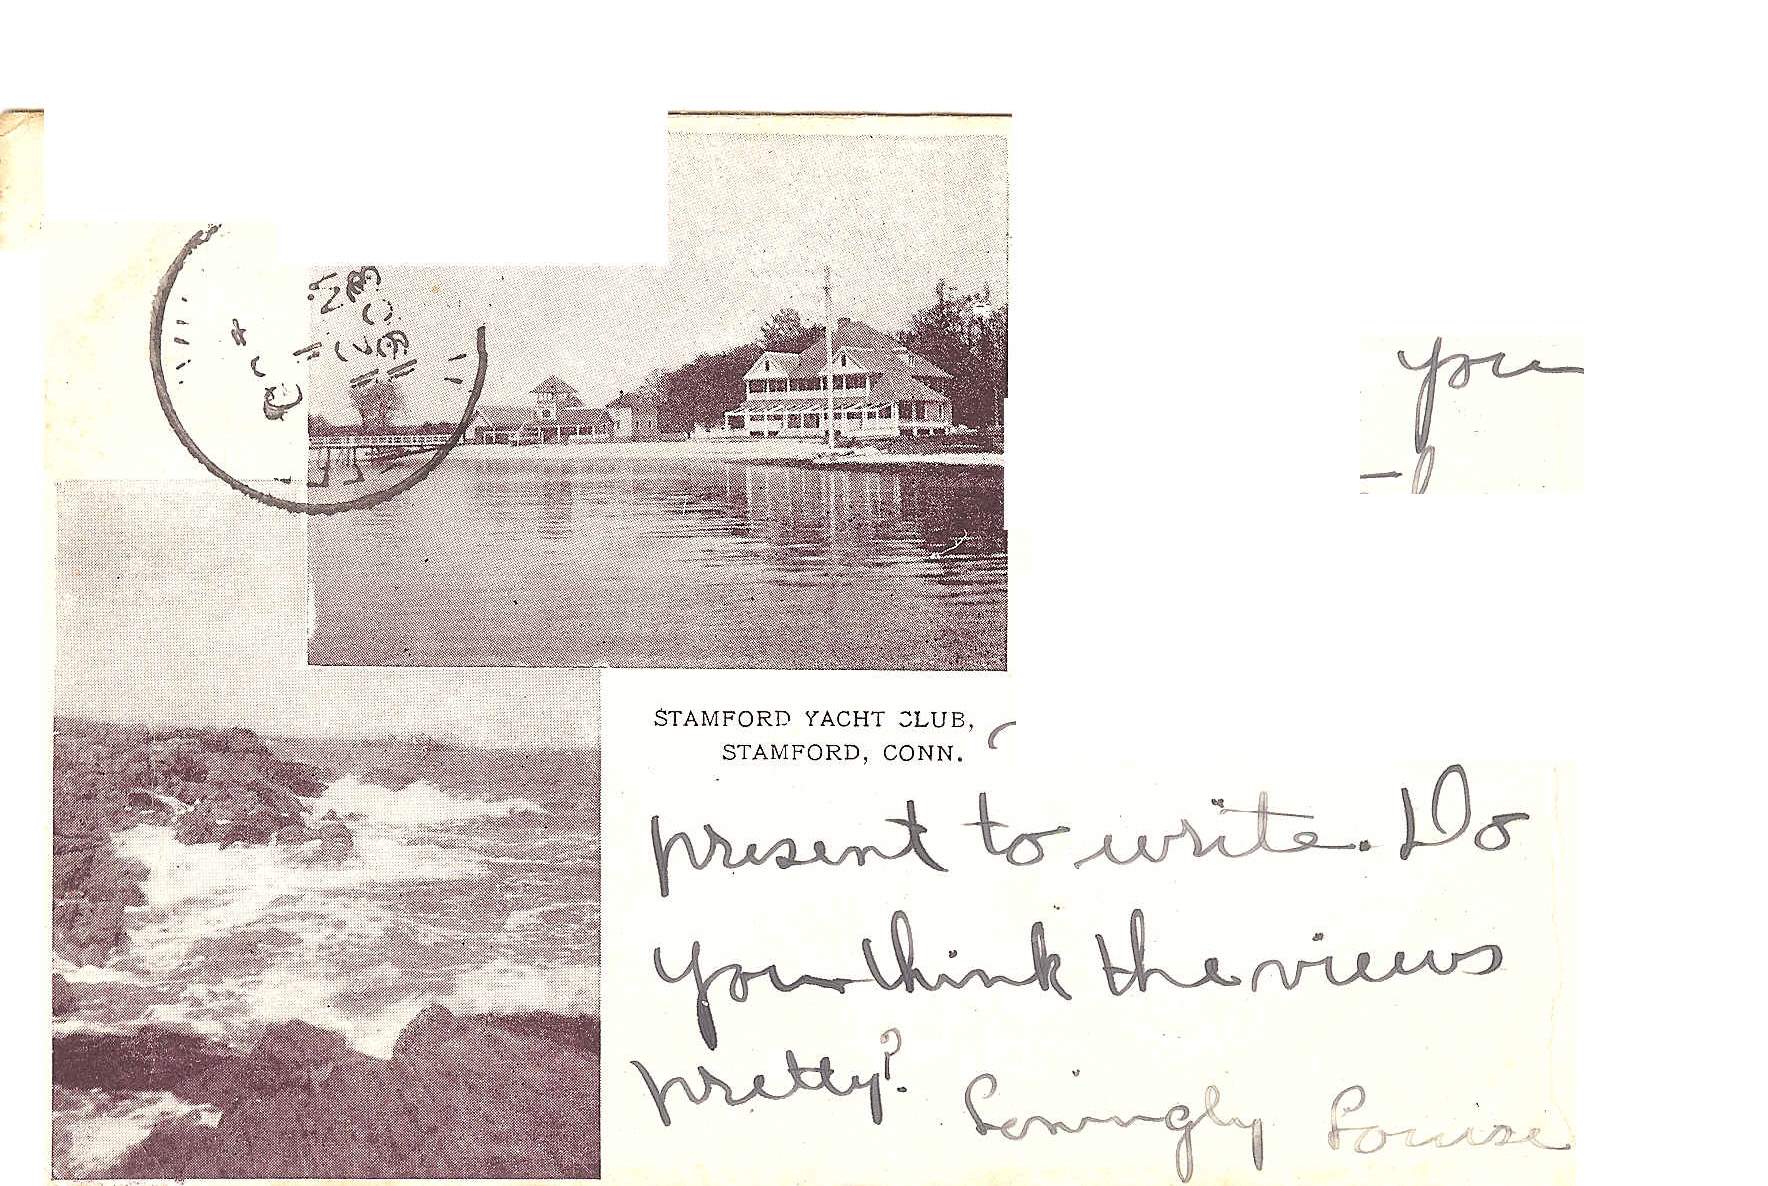 you
STAMFORD YACHT CLUB,
STAMFORD, CONN.
present to write. Do
you think the views
pretty?
Lovingly Louise